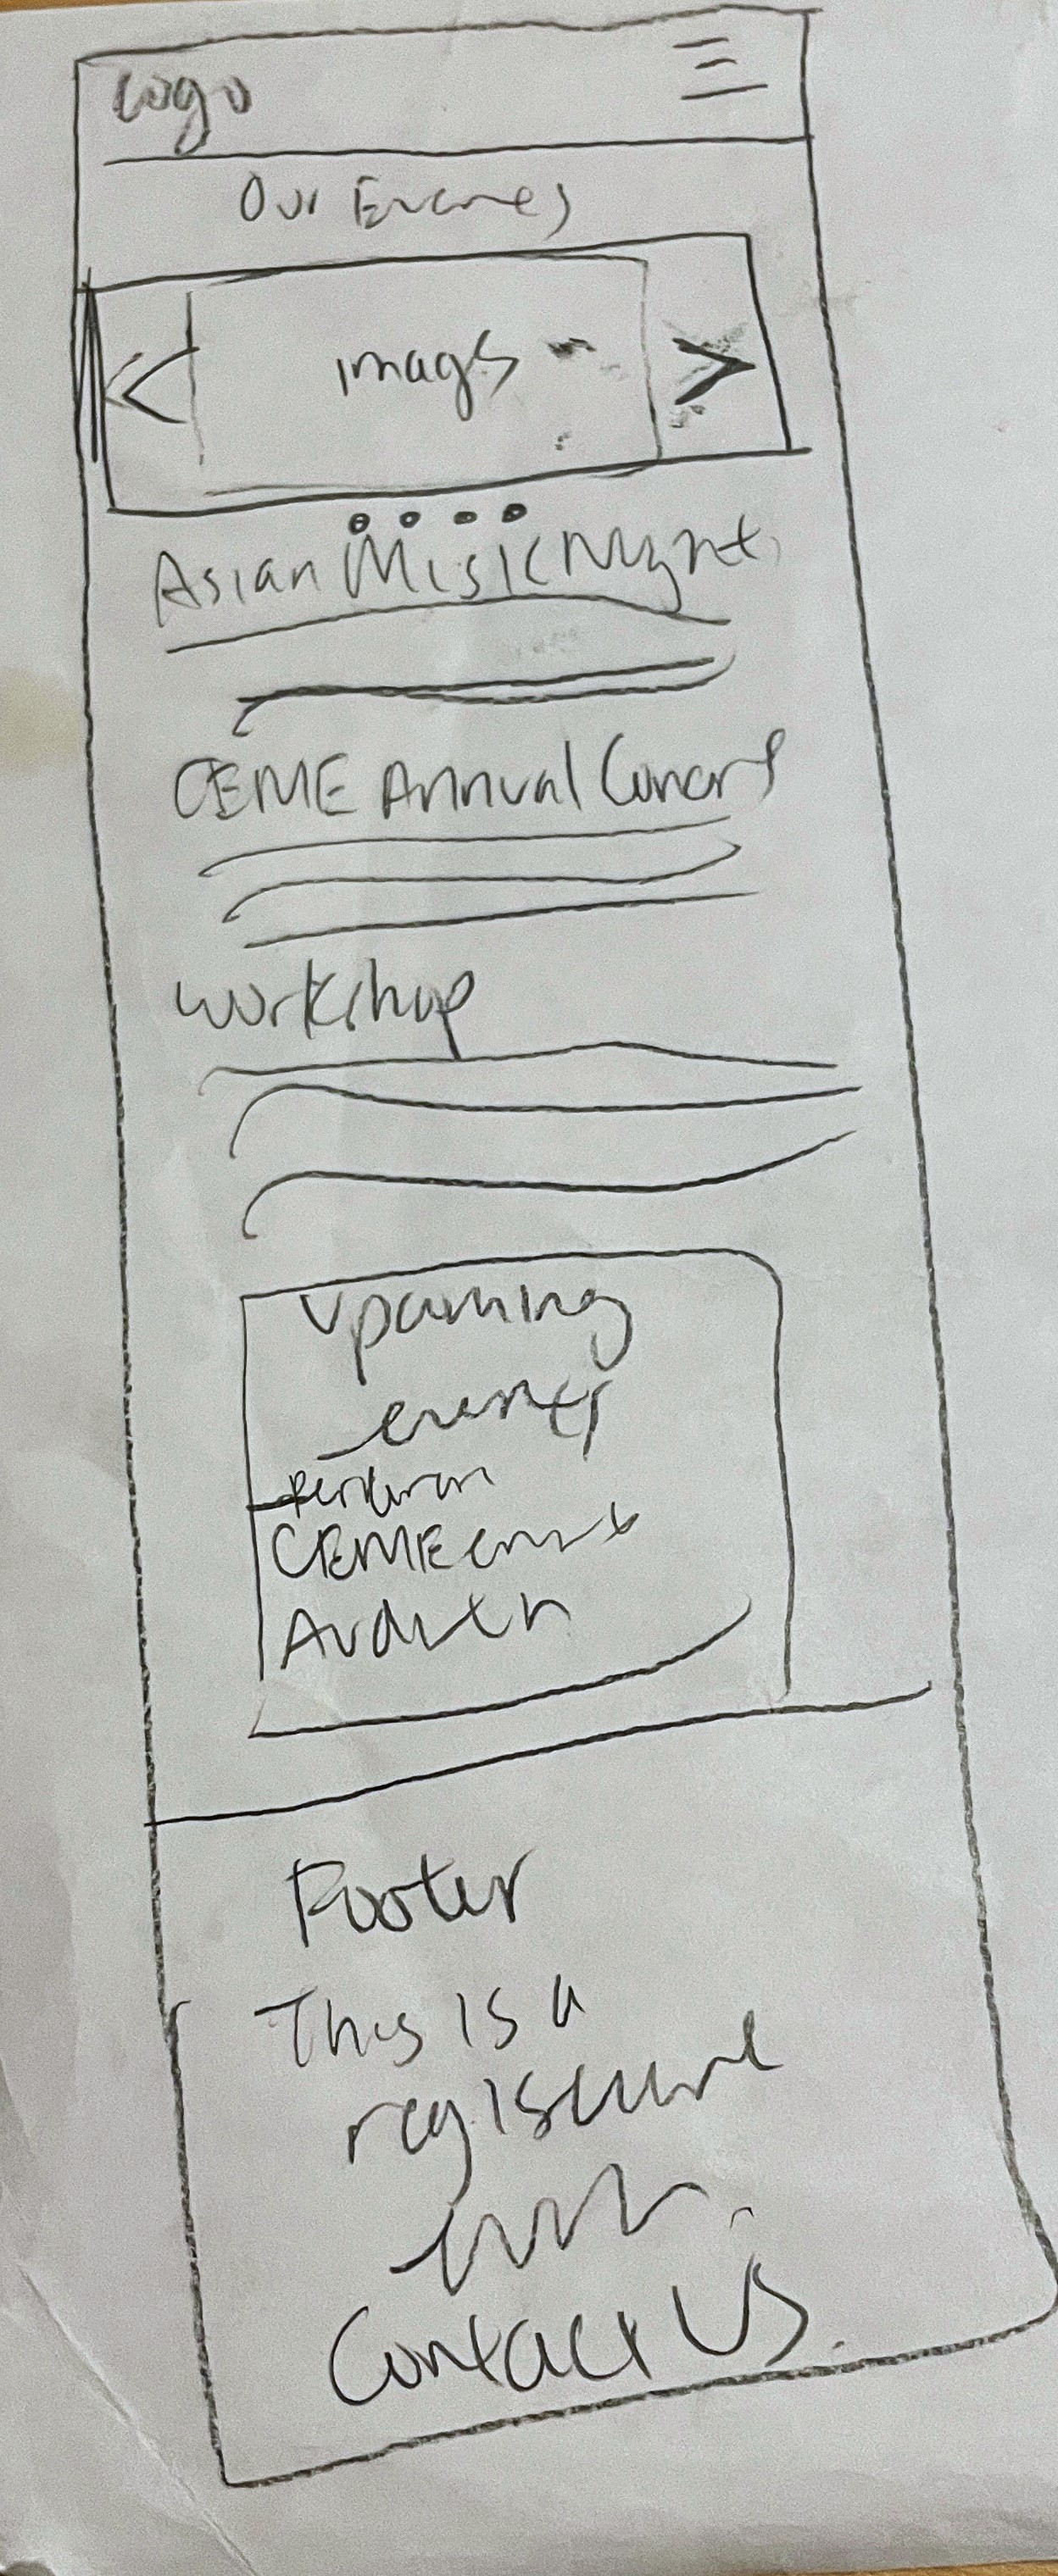 Logo
Our Events
images
Asian Music Night
CEME Annual Concert
workshop
Upcoming
events
CEME
Audition
Footer
This is a
registered
Contact Us.